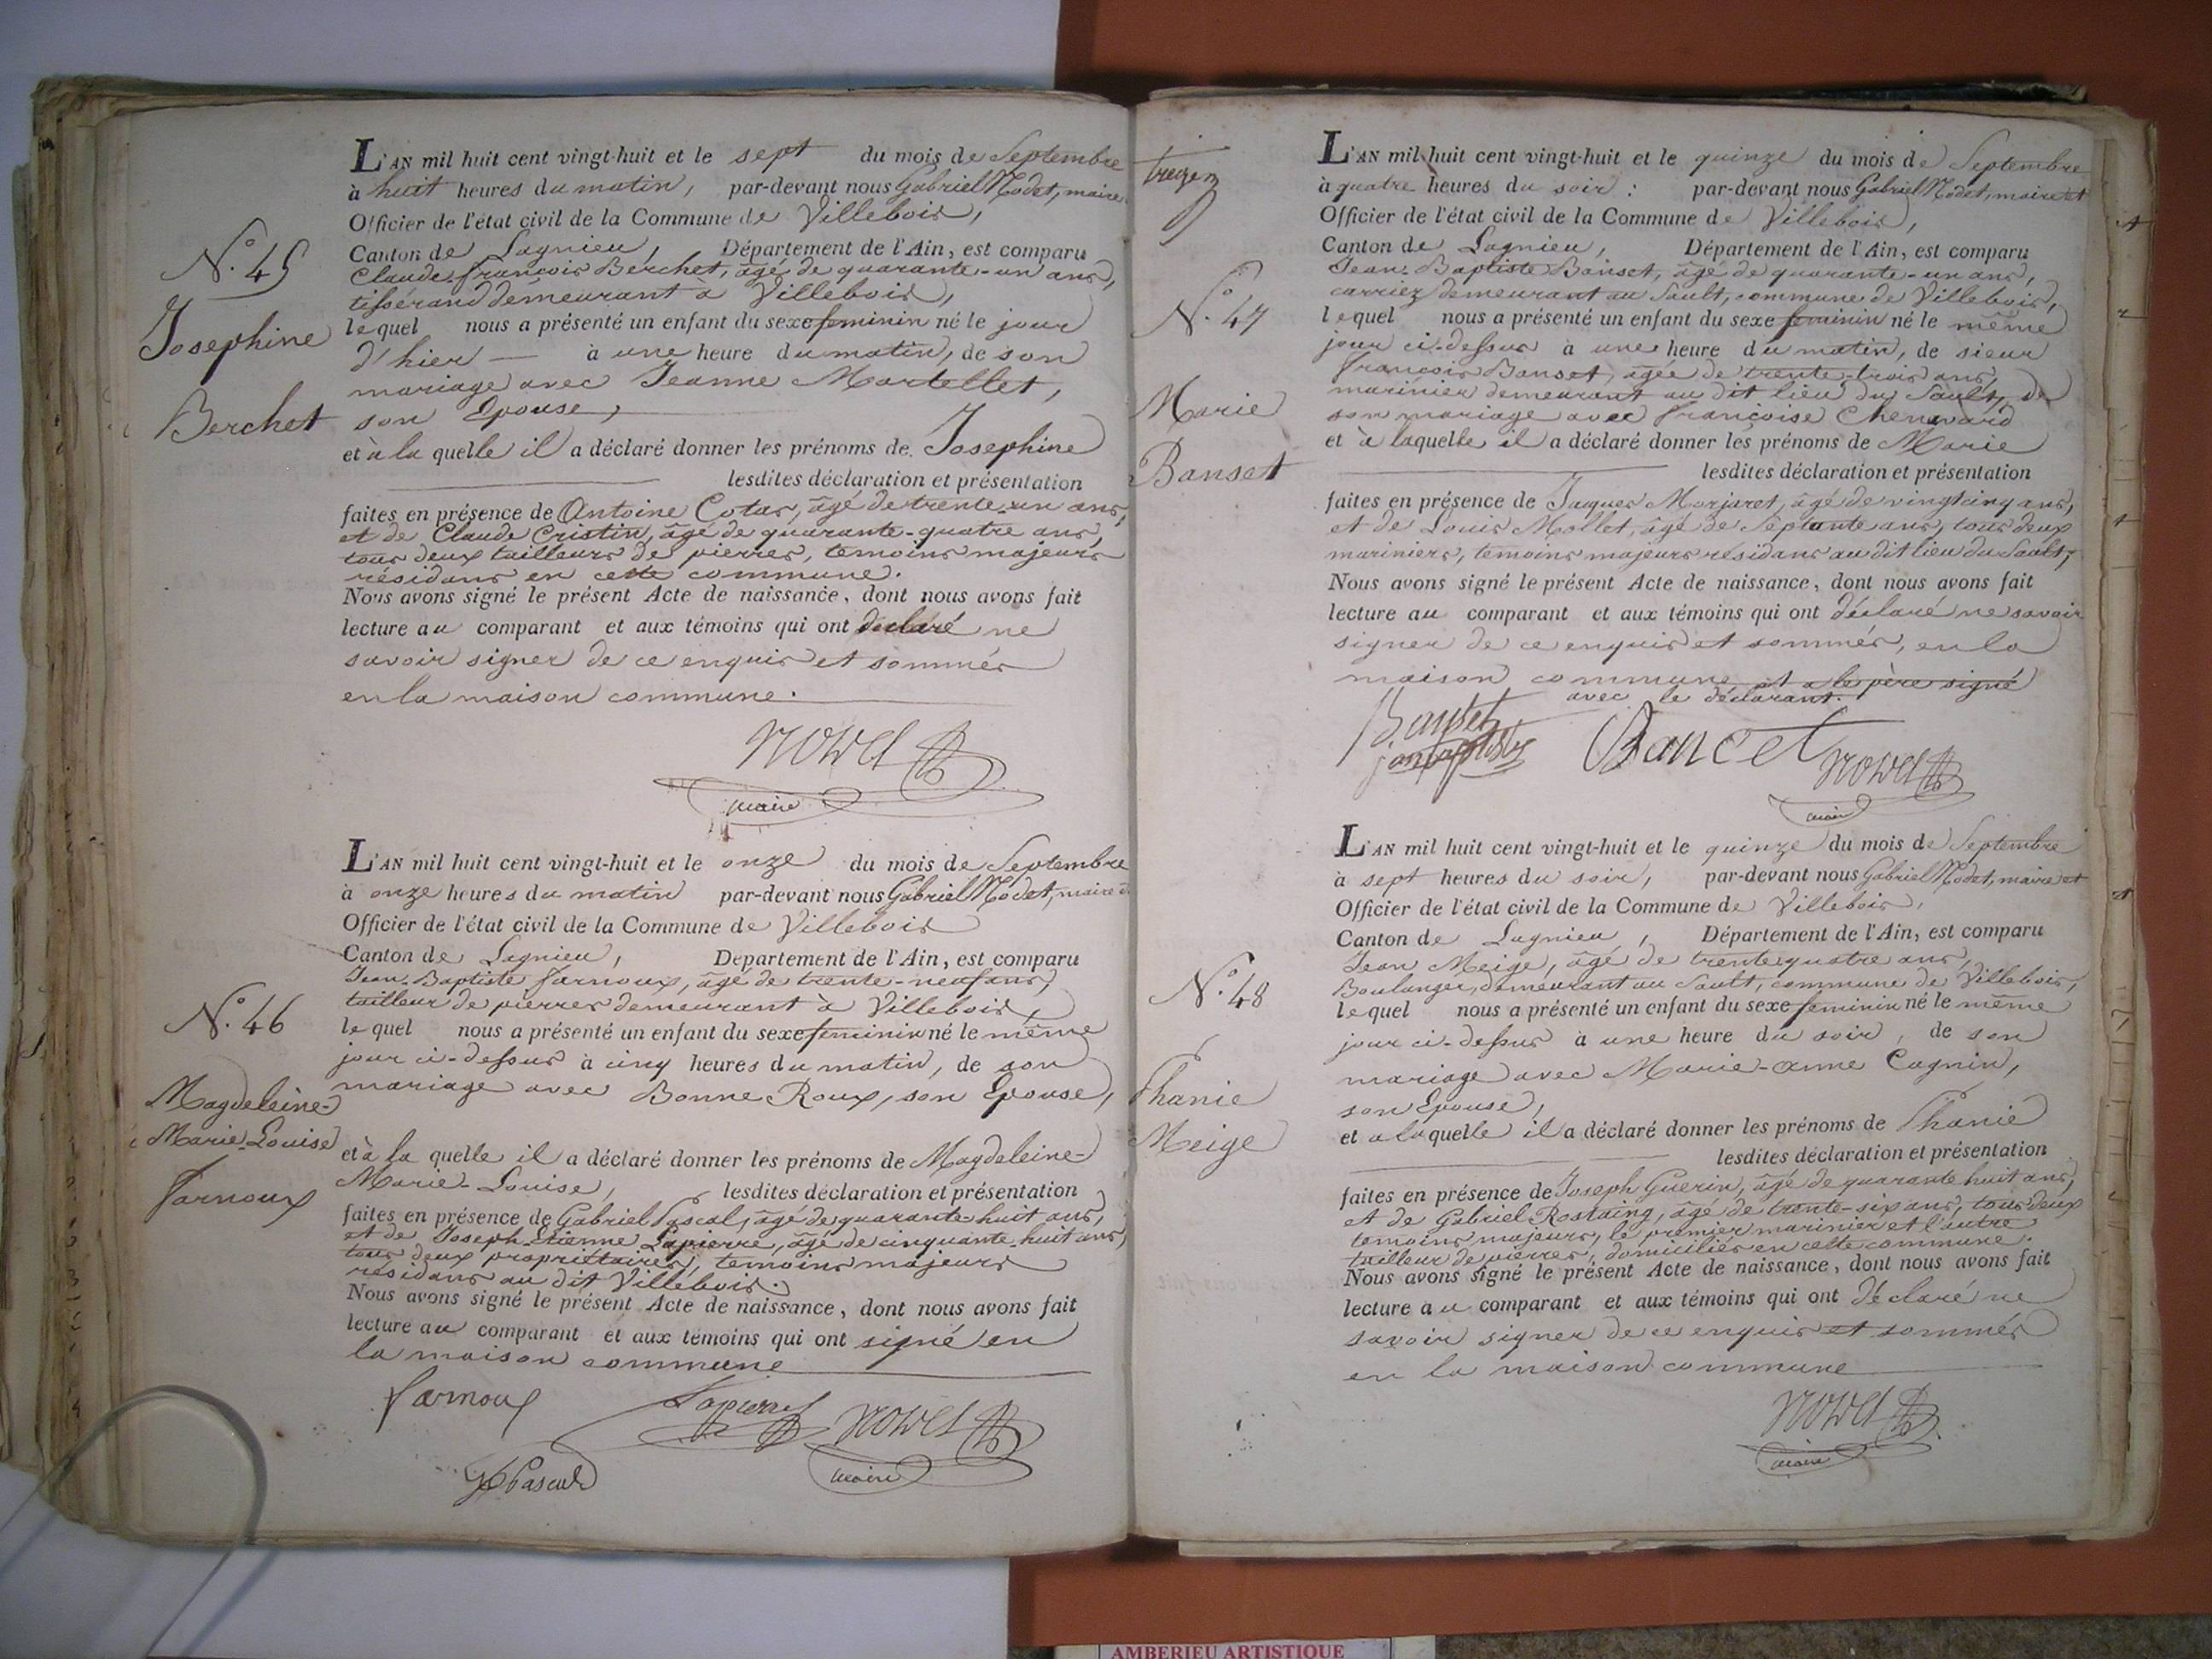 L'AN mil huit cent vingt-huit et le sept du mois de Septembre
à huit heures du matin, par-devant nous Gabriel Modet, maire
Officier de l'état civil de la Commune de Villebois,
Canton de Lagnieu, Département de l'Ain, est comparu
Claude-françois Berchet, âgé de quarante-un ans,
tissérand démeurant à Villebois,
lequel nous a présenté un enfant du sexe feminin né le jour
d'hier à une heure du matin, de son
mariage avec Jeanne Martellet,
son Epouse,
et à la quelle il a déclaré donner les prénoms de Josephine
lesdites déclaration et présentation
faites en présence de Antoine Cotas, âgé de trente-un ans,
et de Claude Cristin, âgé de quarante-quatre ans,
tous deux tailleurs de pierres, temoins majeurs
résidans en cette commune.
Nous avons signé le présent Acte de naissance, dont nous avons fait
lecture au comparant et aux témoins qui ont déclaré ne
savoir signer de ce enquis et sommés
en la maison commune.
maire
N.° 45
Josephine
Berchet
L'AN mil huit cent vingt-huit et le onze du mois de Septembre
à onze heures du matin par-devant nous Gabriel Modet, maire
Officier de l'état civil de la Commune de Villebois
Canton de Lagnieu, Département de l'Ain, est comparu
Jean-Baptiste farnoux, âgé de trente-neuf ans,
tailleur de pierres demeurant à Villebois,
lequel nous a présenté un enfant du sexe feminin né le même
jour ci-dessus à cinq heures du matin, de son
mariage avec Bonne Roux, son Epouse,
et à la quelle il a déclaré donner les prénoms de Magdeleine-
Marie-Louise, lesdites déclaration et présentation
faites en présence de Gabriel Pascal, âgé de quarante-huit ans,
et de Joseph-Etienne Lapierre, âgé de cinquante-huit ans,
tous deux propriétaires, temoins majeurs
résidans au dit Villebois.
Nous avons signé le présent Acte de naissance, dont nous avons fait
lecture au comparant et aux témoins qui ont signé en
la maison commune
farnoux Lapierre
Pascal maire
N.° 46
Magdeleine-
Marie-Louise
farnoux
L'AN mil huit cent vingt-huit et le quinze du mois de Septembre
à quatre heures du soir : par-devant nous Gabriel Modet, maire et
Officier de l'état civil de la Commune de Villebois,
Canton de Lagnieu, Département de l'Ain, est comparu
Jean-Baptiste Banset, âgé de quarante-un ans,
carriez demeurant au Sault, commune de Villebois,
lequel nous a présenté un enfant du sexe feminin né le même
jour ci-dessus à une heure du matin, de sieur
françois Banset, âgée de trente-trois ans,
marinier demeurant au dit lieu du Sault, de
son mariage avec françoise Chenavard
et à laquelle il a déclaré donner les prénoms de Marie
lesdites déclaration et présentation
faites en présence de Jaques Morjaret, âgé de vingt cinq ans,
et de Louis Mollet, âgé de Septante ans, tous deux
mariniers, temoins majeurs résidans au dit lieu du Sault;
Nous avons signé le présent Acte de naissance, dont nous avons fait
lecture au comparant et aux témoins qui ont déclaré ne savoir
signer de ce enquis et sommés, en la
maison commune et a le père signé
avec le déclarant.
Bancet
maire
treizen
N.° 47
Marie
Banset
L'AN mil huit cent vingt-huit et le quinze du mois de Septembre
à sept heures du soir, par-devant nous Gabriel Modet, maire et
Officier de l'état civil de la Commune de Villebois,
Canton de Lagnieu, Département de l'Ain, est comparu
Jean Meige, âgé de trente quatre ans,
Boulanger, demeurant au Sault, commune de Villebois,
lequel nous a présenté un enfant du sexe feminin né le même
jour ci-dessus à une heure du soir, de son
mariage avec Marie-anne Cagnin,
son Epouse,
et a laquelle il a déclaré donner les prénoms de Phanie
lesdites déclaration et présentation
faites en présence de Joseph Guerin, âgé de quarante huit ans,
et de Gabriel Rostaing, âgé de trente-six ans, tous deux
temoins majeurs, le premier marinier et l'autre
tailleur de pierres, domiciliés en cette commune.
Nous avons signé le présent Acte de naissance, dont nous avons fait
lecture au comparant et aux témoins qui ont déclaré ne
savoir signer de ce enquis et sommés
en la maison commune
maire
N.° 48
Phanie
Meige
AMBERIEU ARTISTIQUE